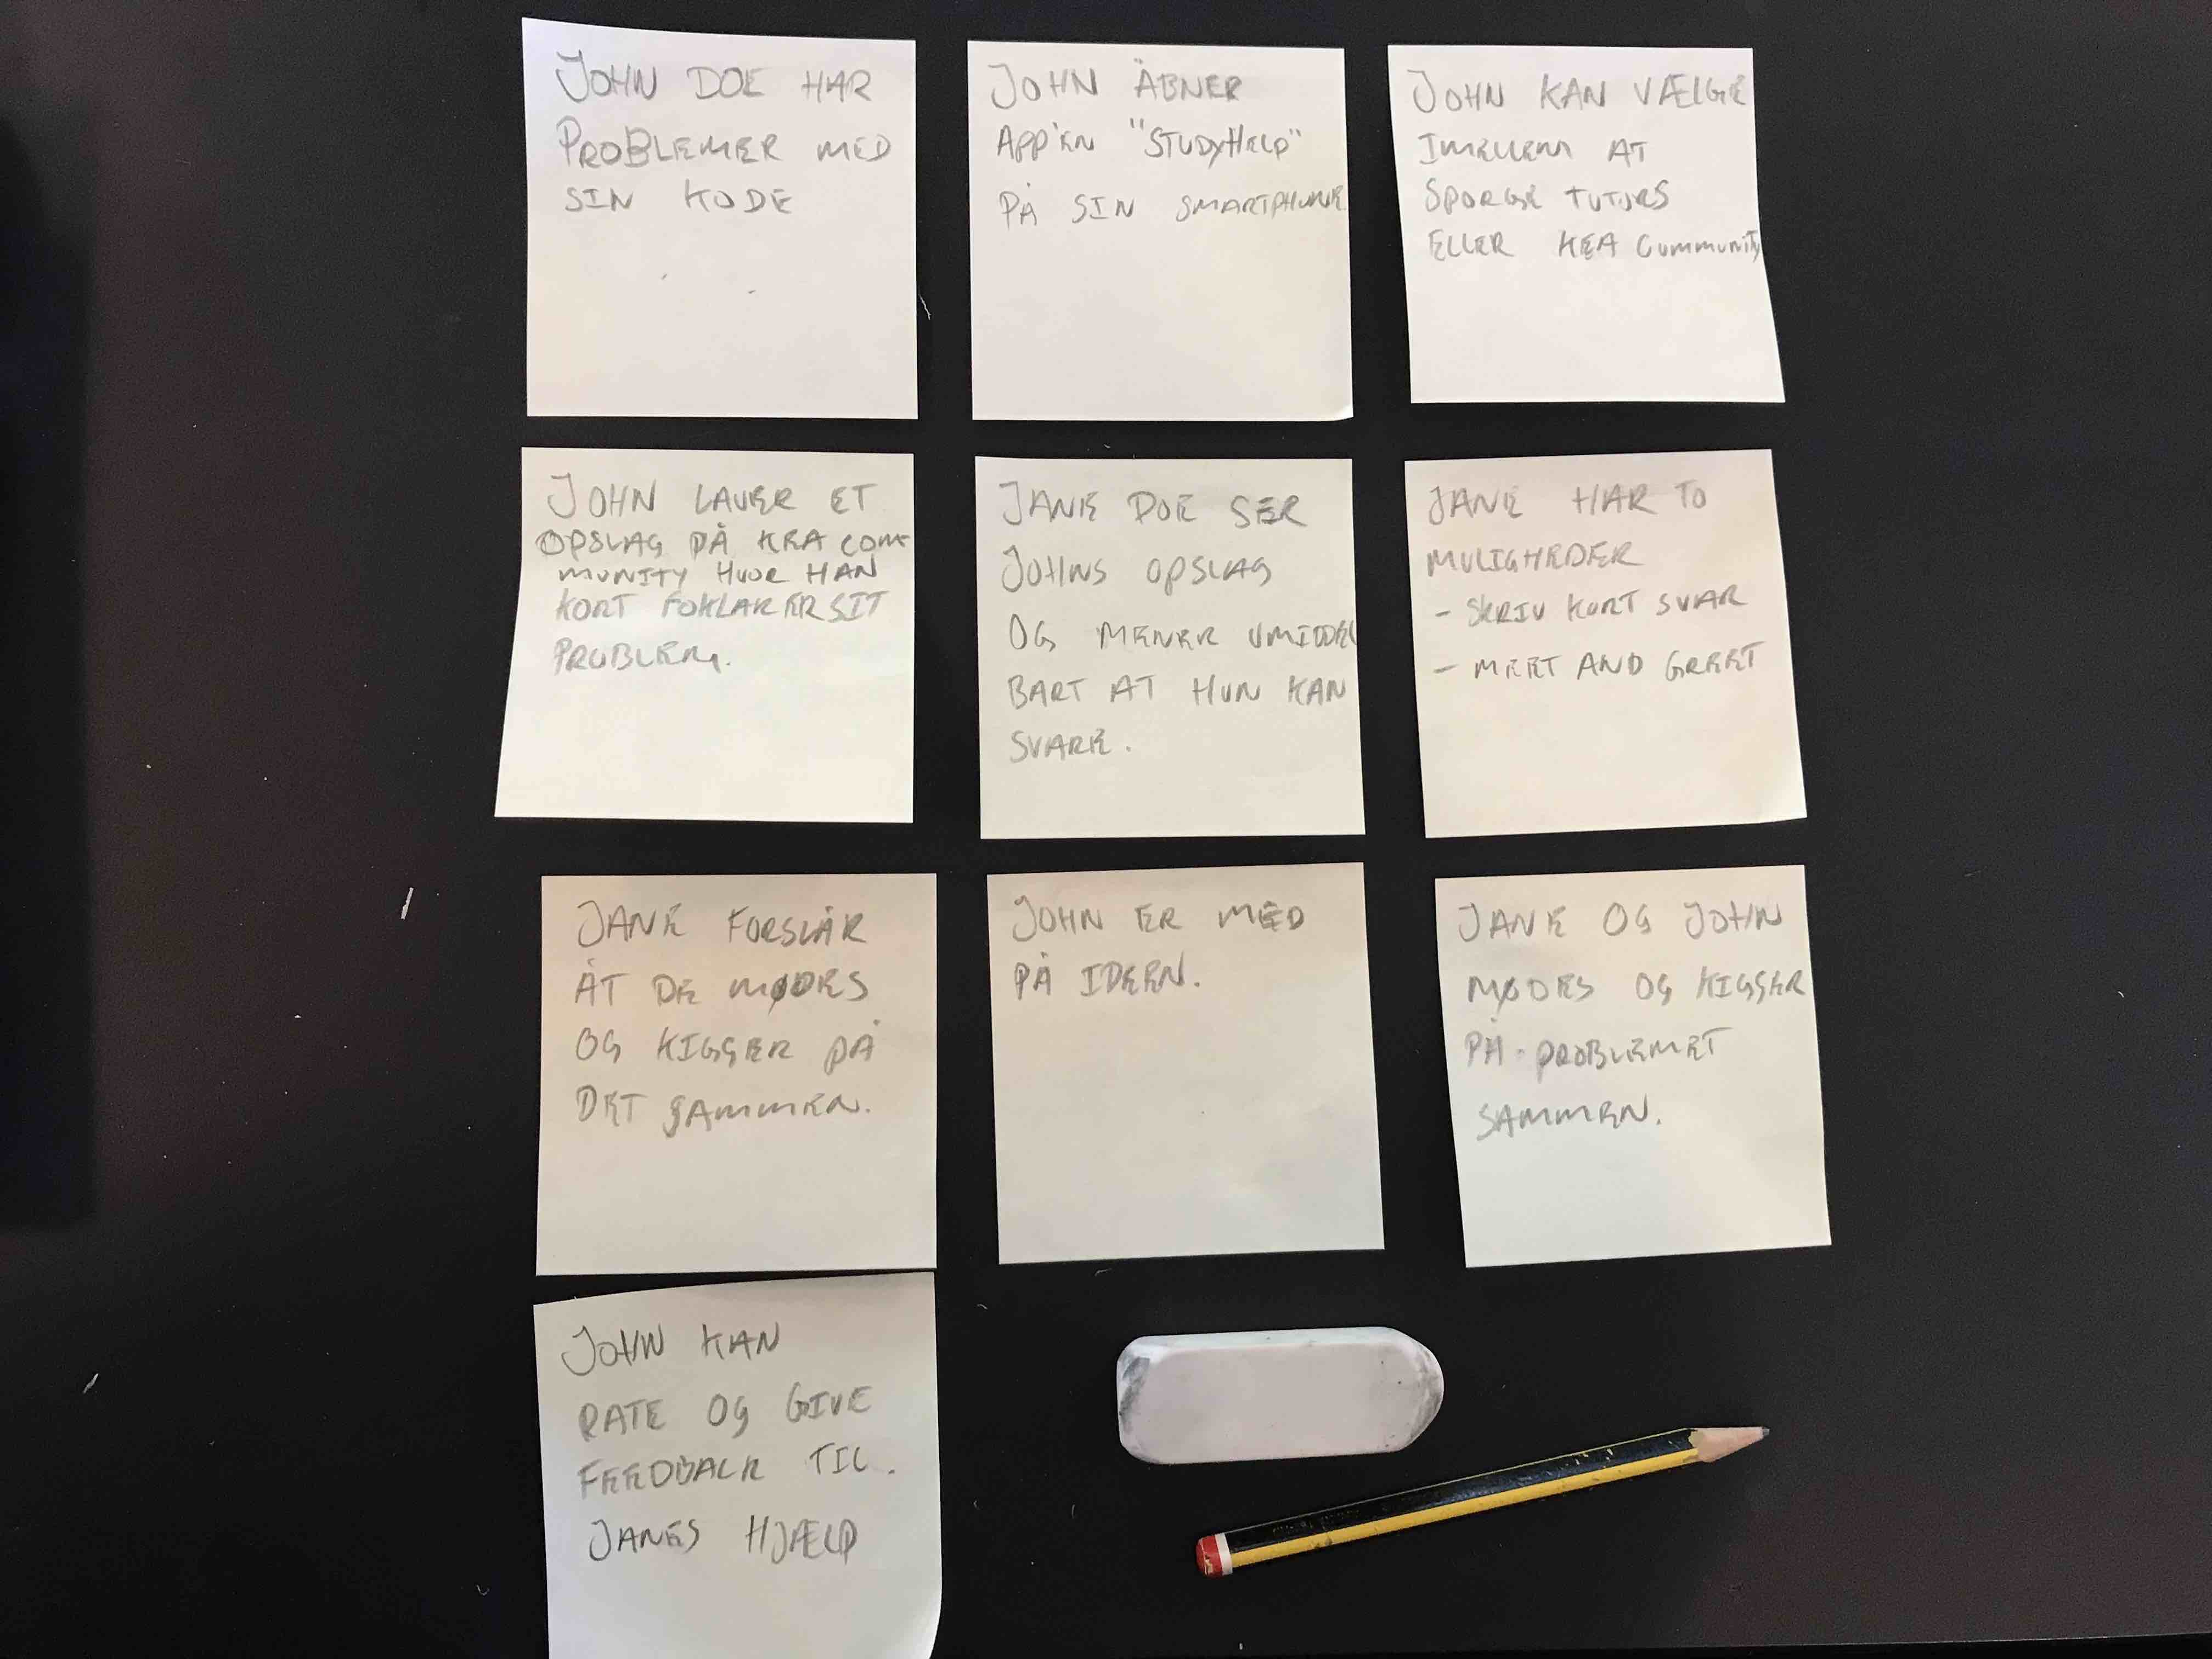 JOHN DOE HAR
PROBLEMER MED
SIN KODE
JOHN ÅBNER
APP'EN "STUDYHELP"
PÅ SIN SMARTPHONE
JOHN KAN VÆLGE
IMELLEM AT
SPORGE TUTORS
ELLER KEA COMMUNITY
JOHN LAVER ET
OPSLAG PÅ KEA COM-
MUNITY HVOR HAN
KORT FOKLARER SIT
PROBLEM.
JANE DOE SER
JOHNS OPSLAG
OG MENER UMIDDEL
BART AT HUN KAN
SVARE.
JANE HAR TO
MULIGHEDER
- SKRIV KORT SVAR
- MEET AND GREET
JANE FORSLÅR
AT DE MØDES
OG KIGGER PÅ
DET SAMMEN.
JOHN ER MED
PÅ IDEEN.
JANE OG JOHN
MØDES OG KIGGER
PÅ PROBLEMET
SAMMEN.
JOHN KAN
RATE OG GIVE
FEEDBACK TIL.
JANES HJÆLP